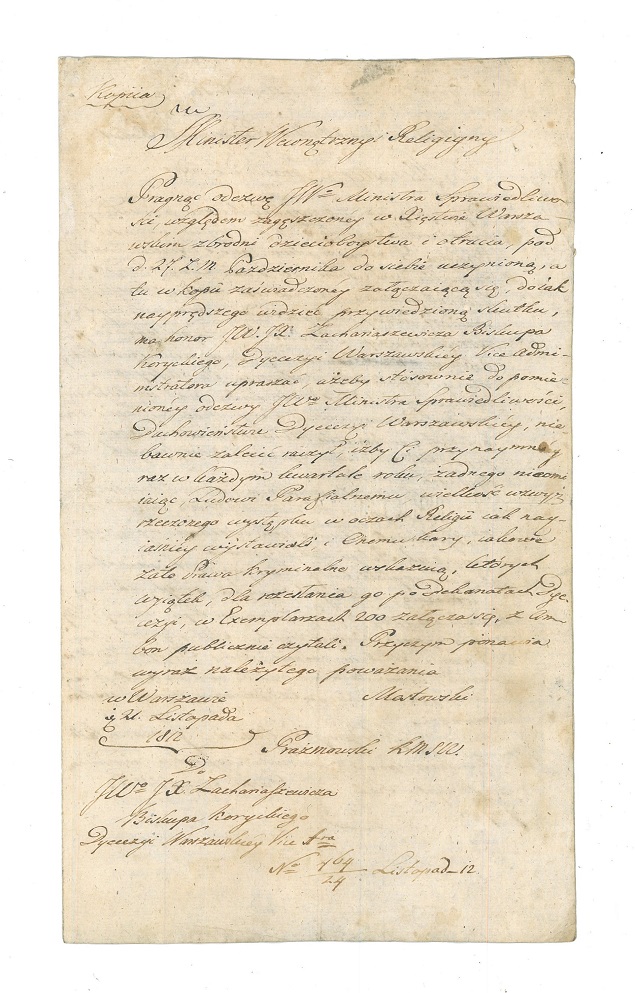 Kopiia
Minister Wewnętrzny i Religijny
Pragnąc odezwę JWo Ministra Sprawiedliwo-
ści względem zagęszczoney w Xięstwie Warsza-
wskim zbrodni dzieciobóystwa i otrucia, pod
d. 27. Z. M Października do siebie uczynioną, a
tu w kopii zaświadczoney załączaiącą się, do iak
nayprędszego widzieć przywiedzioną skutku,
ma honor JW. JX. Zachariaszewicza Biskupa
Koryckiego, Dyecezyi Warszawskiéy Vice Admi-
nistratora upraszać, ażeby stósownie do pomie-
nionéy odezwy JWo Ministra Sprawiedliwości,
Duchowieństwu Dyecezyi Warszawskiéy, nie-
bawnie zalécić raczył, iżby Ci przynaymniéy
raz w każdym kwartale roku, żadnego nieomi-
iaiąc, Ludowi Parafialnemu wielkość wzwyż
rzeczonego występku w oczach Religii iak nay-
iaśniéy wystawiali, i Onemu kary, iakowe
zało Prawa kryminalne wskazuią, których
wyiątek, dla rozesłania go po Dekanatach Dye-
cezyi, w Exemplarzach 200 załącza się, z Am-
bon publicznie czytali. Przyczym ponawia
wyraz należytego poważania
w Warszawie
Listopada
1812
Prażmowski
Do
JWo JX. Zachariaszewicza
Biskupa Koryckiego
Dyecezyi Warszawskiéy Vice Ara
No 764/24 Listopad 12